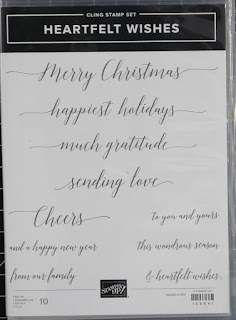 CLING STAMP SET
HEARTFELT WISHES
Merry Christmas
happiest holidays
much gratitude
sending love
Cheers
to you and yours
and a happy new year
this wondrous season
from our family
& heartfelt wishes
10
STAMPIN' UP!